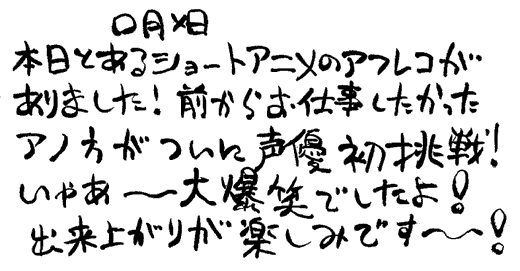 〇月×日
本日とあるショートアニメのアフレコが
ありました！前からお仕事したかった
アノ方がついに声優初挑戦！
いやあ〜大爆笑でしたよ！
出来上がりが楽しみです〜！